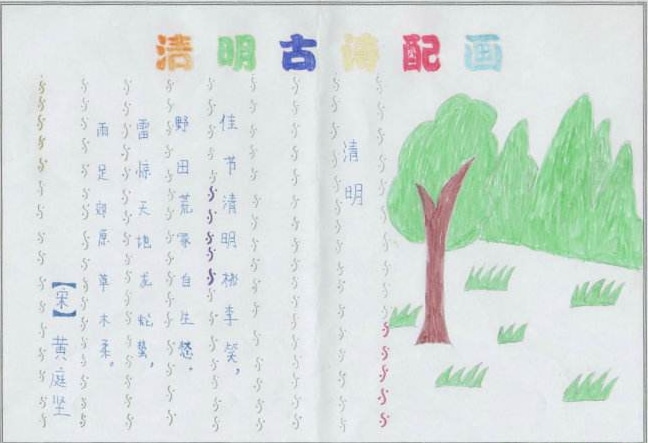 洁明古诗配画
清明
佳节清明桃李笑，
野田荒冢自生愁。
雷惊天地龙蛇蛰，
雨足郊原草木柔。
【宋】黄庭坚